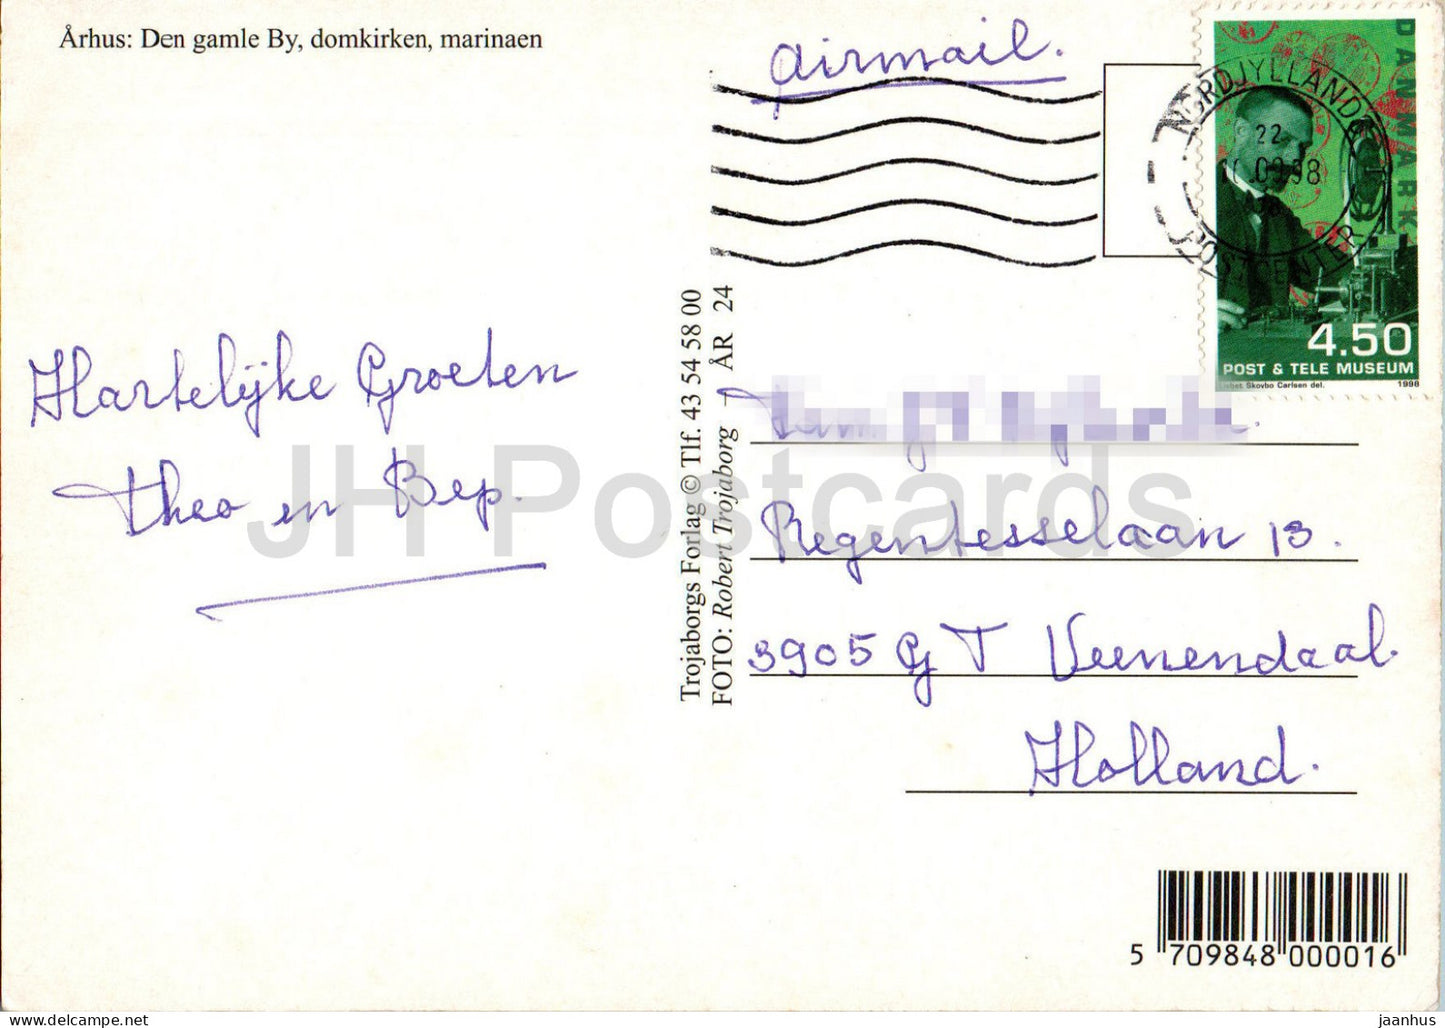 Århus: Den gamle By, domkirken, marinaen
airmail.
DANMARK
NORDJYLLANDS
22
POSTCENTER
4.50
POST & TELE MUSEUM
Lisbet Skovbo Carlsen del. 1998
Hartelijke Groeten
Theo en Bep.
Trojaborgs Forlag © Tlf. 43 54 58 00
FOTO: Robert Trojaborg – ÅR 24
Regentesselaan 13.
3905 GT Veenendaal.
Holland.
JH Postcards
5 709848 000016
jaanhus
delcampe.net